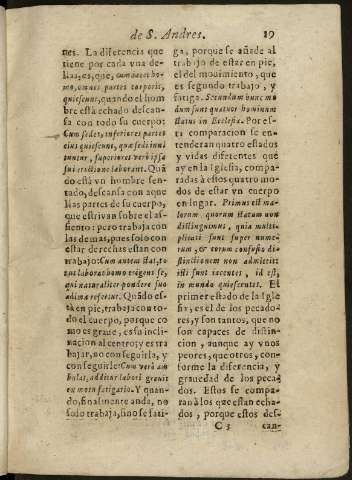 de S. Andres. 19
nes. La diferencia que
tiene por cada vna de-
llas, es, que, cum iacet ho-
mo, omnes partes corporis,
quiescunt, quando el hom
bre està echado descan-
sa con todo su cuerpo:
Cum sedet, inferiores partes
eius quiescunt, quæ sedi inni
tuntur, superiores verò ipsa
sui erectione laborant. Quã
do està vn hombre sen-
tado, descansa con aque
llas partes de su cuerpo,
que estrivan sobre el as-
siento: pero trabaja con
las demas, pues solo con
estar derechas estan con
trabajo: Cum autem stat, to-
tus laborat homo erigens se,
qui naturaliter pondere suo
ad ima refertur. Quãdo es-
tà en pie, trabaja con to-
do el cuerpo, porque co
mo es graue, es su incli-
nacion al centro; y es tra
bajar, no conseguirla, y
conseguirle: Cum verò am
bulat, additur labori grauit
ex motu fatigatio. Y quan-
do, finalmente anda, no
solo trabaja, sino se fati-
ga, porque se añade al
trabajo de estar en pie,
el del mouimiento, que
es segundo trabajo, y
fatiga. Secundum hunc mo
dum sunt quatuor hominum
status in Ecclesia. Por es-
ta comparacion se en-
tenderan quatro estados
y vidas diferentes que
ay en la Iglesia, compa-
radas à estos quatro mo-
dos de estar vn cuerpo
en lugar. Primus est ma-
lorum quorum statum non
distinguimus, quia multi-
plicati sunt super nume-
rum, & eorum confusio di-
stinctionem non admittit
isti sunt iacentes, id est,
in mundo quiescentes. El
primer estado de la Igle
sia, es el de los pecado-
res, y son tantos, que no
son capaces de distin-
cion, aunque ay vnos
peores, que otros, con-
forme la diferencia, y
grauedad de los peca-
dos. Estos se compa-
ran à los que estan echa-
dos, porque estos des-
C 3 can-